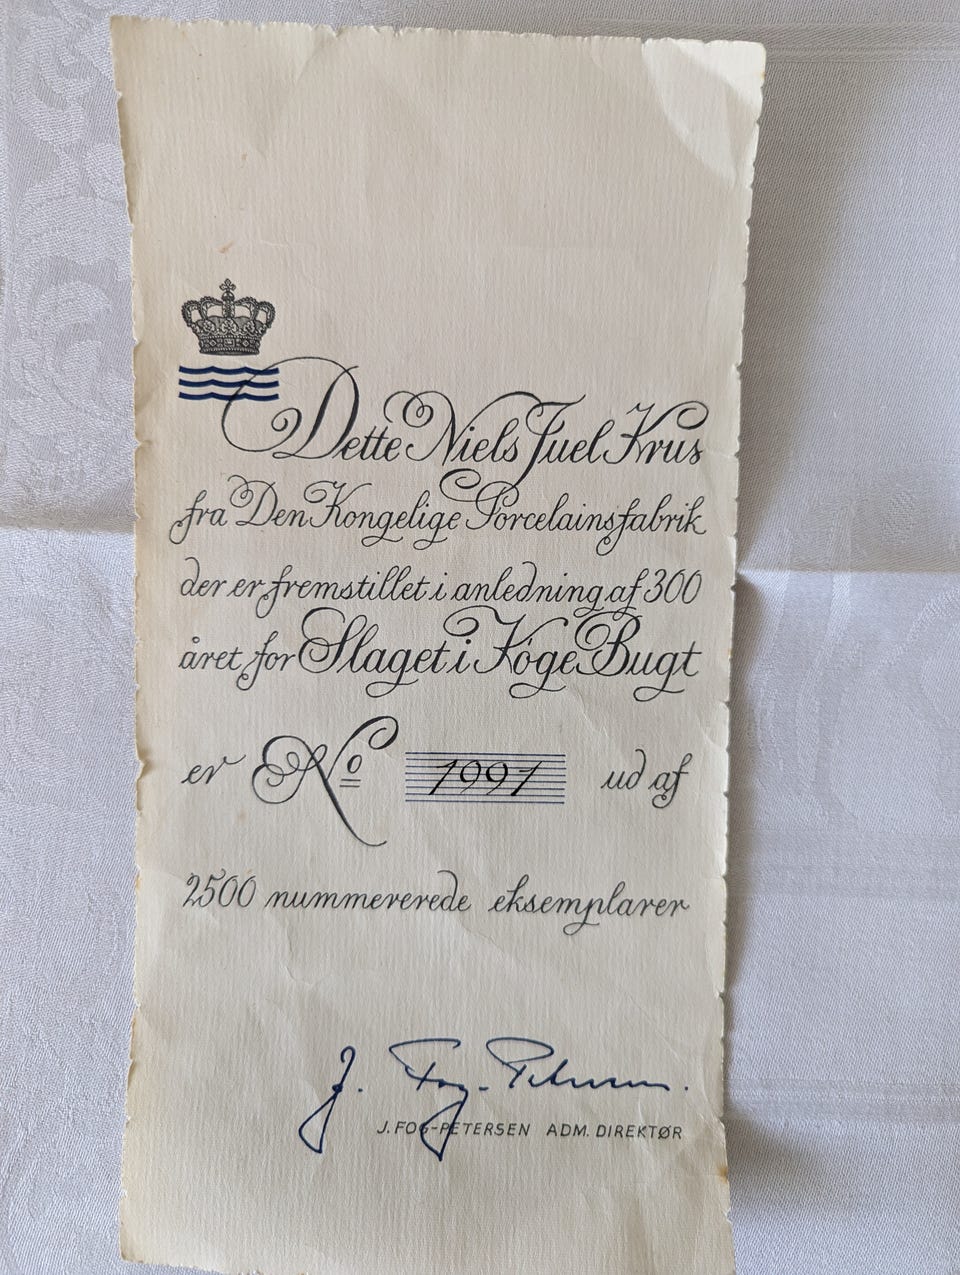 Dette Niels Juel Krus
fra Den Kongelige Porcelainsfabrik
der er fremstillet i anledning af 300
året for Slaget i Køge Bugt
er No 1991 ud af
2500 nummererede eksemplarer
J. Fog-Petersen.
J. FOG-PETERSEN ADM. DIREKTØR